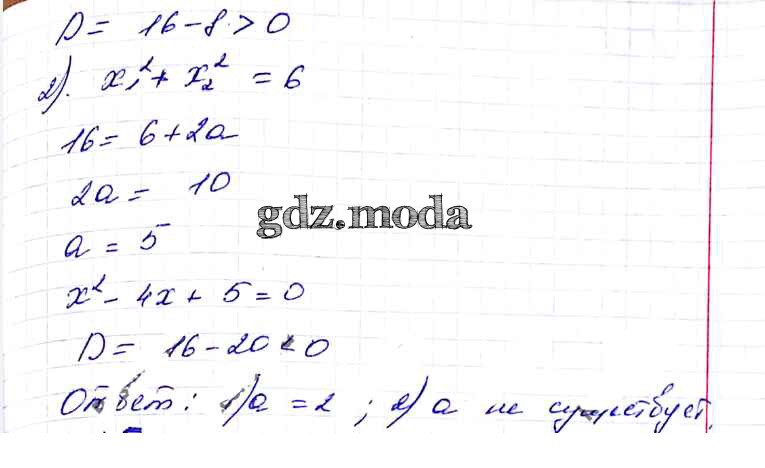 D = 16 - 8 > 0
2). x₁² + x₂² = 6
16 = 6 + 2a
2a = 10
gdz.moda
a = 5
x² - 4x + 5 = 0
D = 16 - 20 < 0
Ответ: 1) a = 2 ; 2) a не существует.